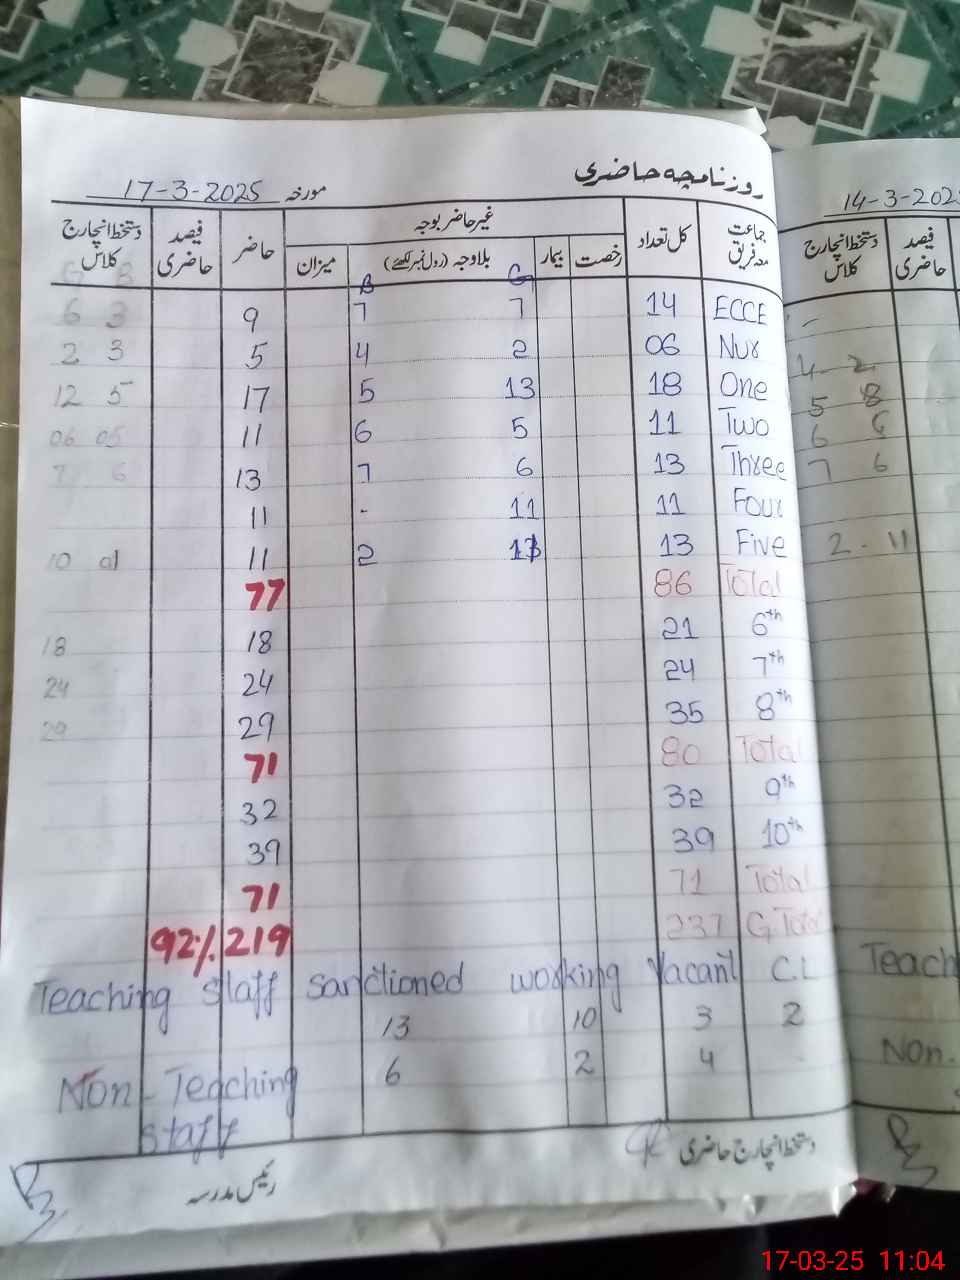 روزنامچہ حاضری
مورخہ 17-3-2025
جماعت معہ فریق کل تعداد غیر حاضر بوجہ حاضر فیصد حاضری دستخط انچارج کلاس
رخصت بیمار بلاوجہ (رول نمبر لکھئے) میزان
B G
G B
6 3 9 7 7 14 ECCE
2 3 5 4 2 06 Nur
12 5 17 5 13 18 One
06 05 11 6 5 11 Two
7 6 13 7 6 13 Three
11 - 11 11 Four
10 01 11 2 13 Five
77 86 Total
18 18 21 6th
24 24 24 7th
29 29 35 8th
71 80 Total
32 32 9th
39 39 10th
71 71 Total
92% 219 237 G.Total
Teaching staff sanctioned working Vacant C.L
13 10 3 2
Non-Teaching staff 6 2 4
دستخط انچارج حاضری
رئیس مدرسہ
14-3-202
فیصد حاضری دستخط انچارج کلاس
4 2
5 8
6 6
7 6
2 - 11
Teach
Non.
17-03-25 11:04